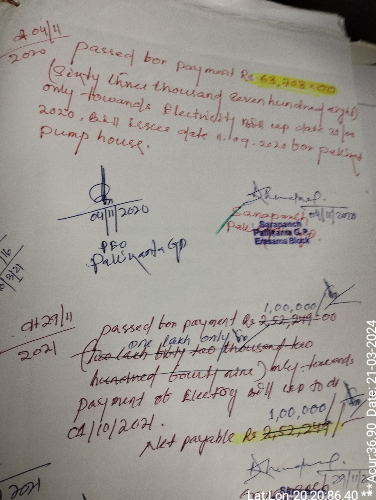 dt 04/11
2020
passed for payment Rs 63,708=00
(Sixty three thousand seven hundred eight)
only towards Electricity Bill up date
2020, Bill issues date 11.09.2020 for
pump house.
04/11/2020
PEO
Palikanta GP
04/11/2020
Sarapanch
Sarapanch
Palikanta G.P.
Erasama Block
dt 29/11
2021
1,00,000/-
passed for payment Rs 2,52,249=00
one lakh only
(Two lakh fifty two thousand two
hundred fourty nine) only towards
payment of Electricity Bill up to dt
01/10/2021.
1,00,000/-
Net payable Rs 2,52,249
29/11
2021
Lat Lon-20 20.86.40 **Acur:36.90 Date: 21-03-2024